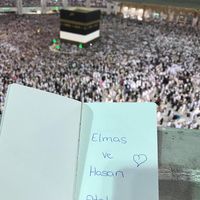 Elmas
ve
Hasan